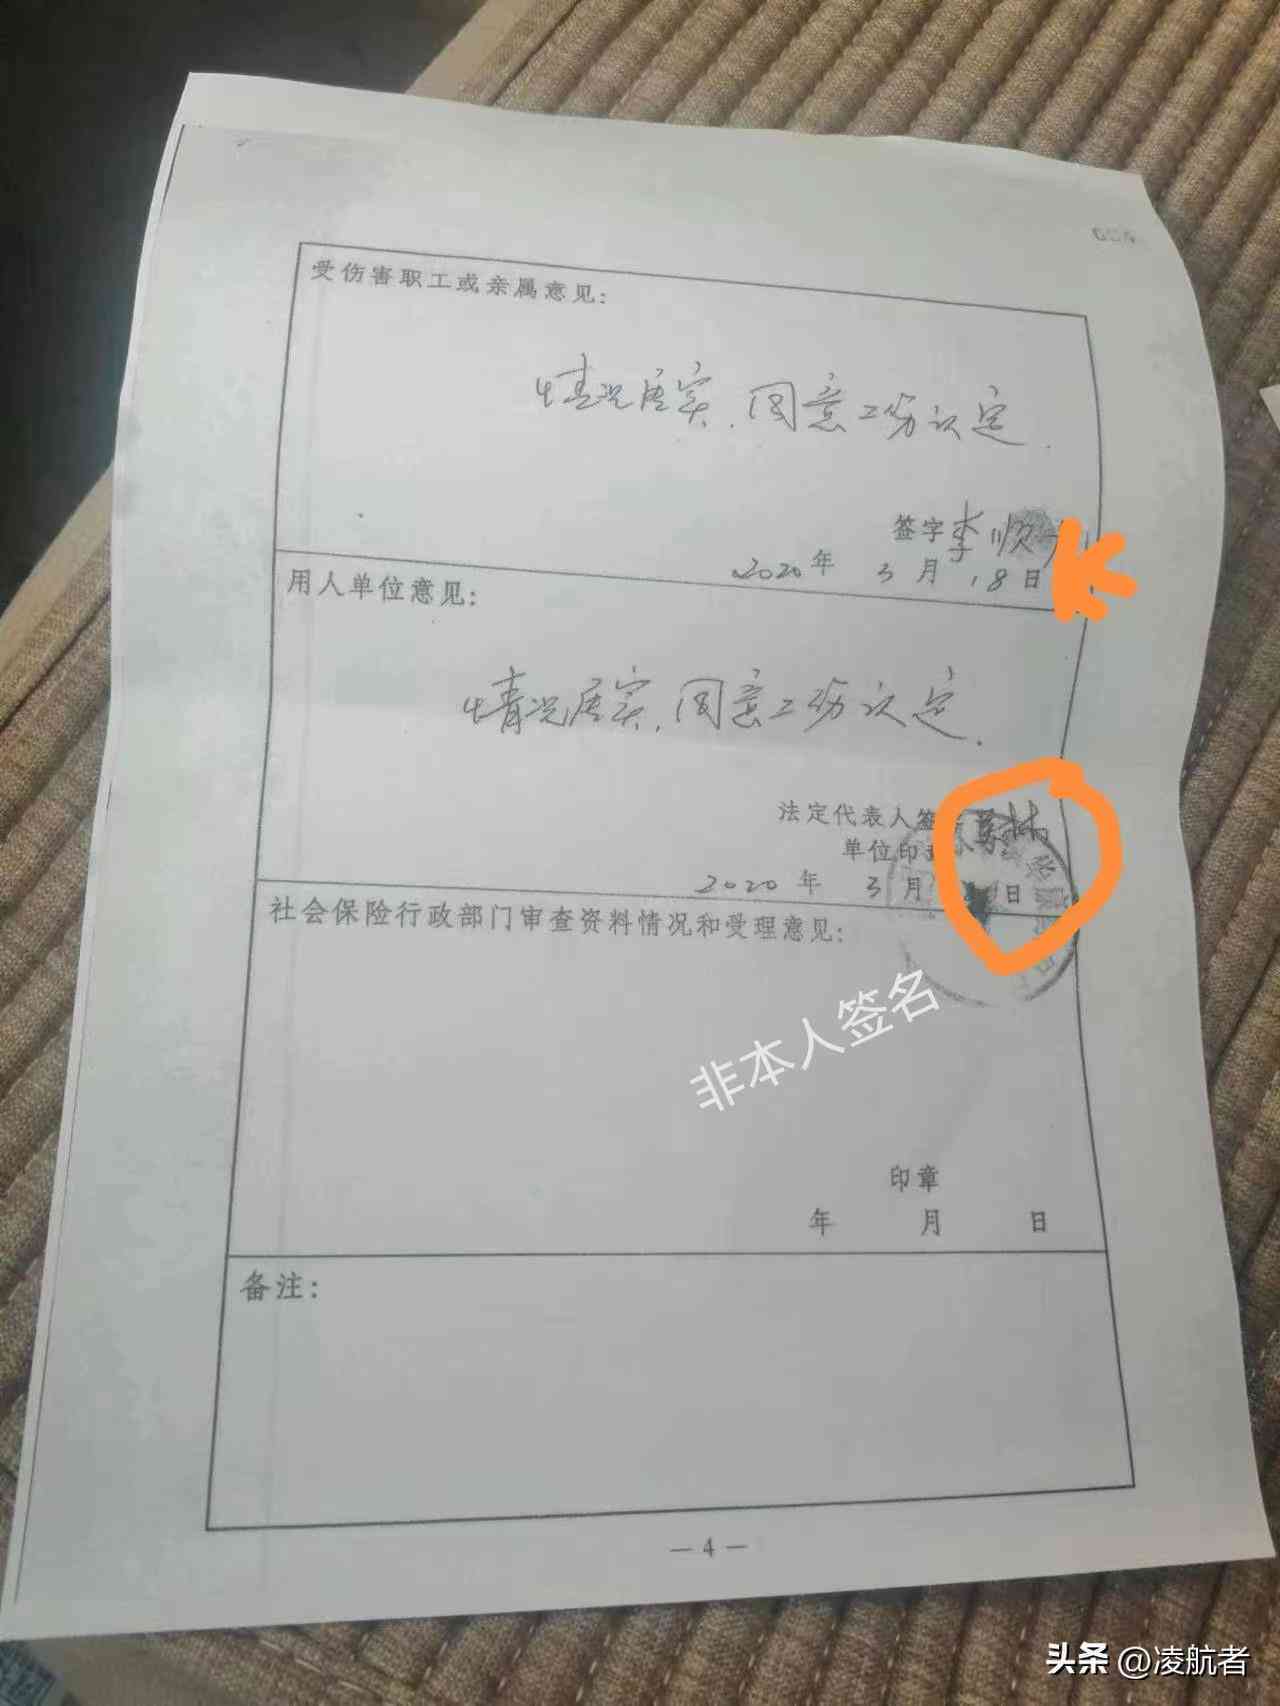 受伤害职工或亲属意见:
情况属实,同意工伤认定.
签字李顺
2020年 3月 18日
用人单位意见:
情况属实,同意工伤认定.
法定代表人签
单位印章
2020年 3月 日
社会保险行政部门审查资料情况和受理意见:
非本人签名
印章
年 月 日
备注:
—4—
头条 @凌航者